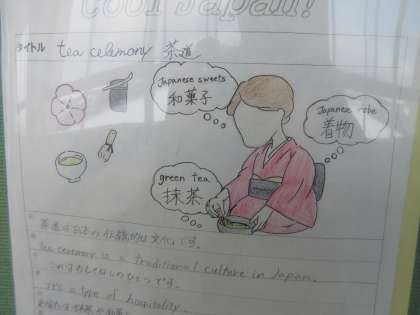 cool Japan!
タイトル tea celemony 茶道
Japanese sweets
和菓子
Japanese robe
着物
green tea
抹茶
茶道は日本の伝統的な文化です。
tea ceremony is a traditional culture in Japan.
おもてなしのひとつです。
It's a type of hospitality